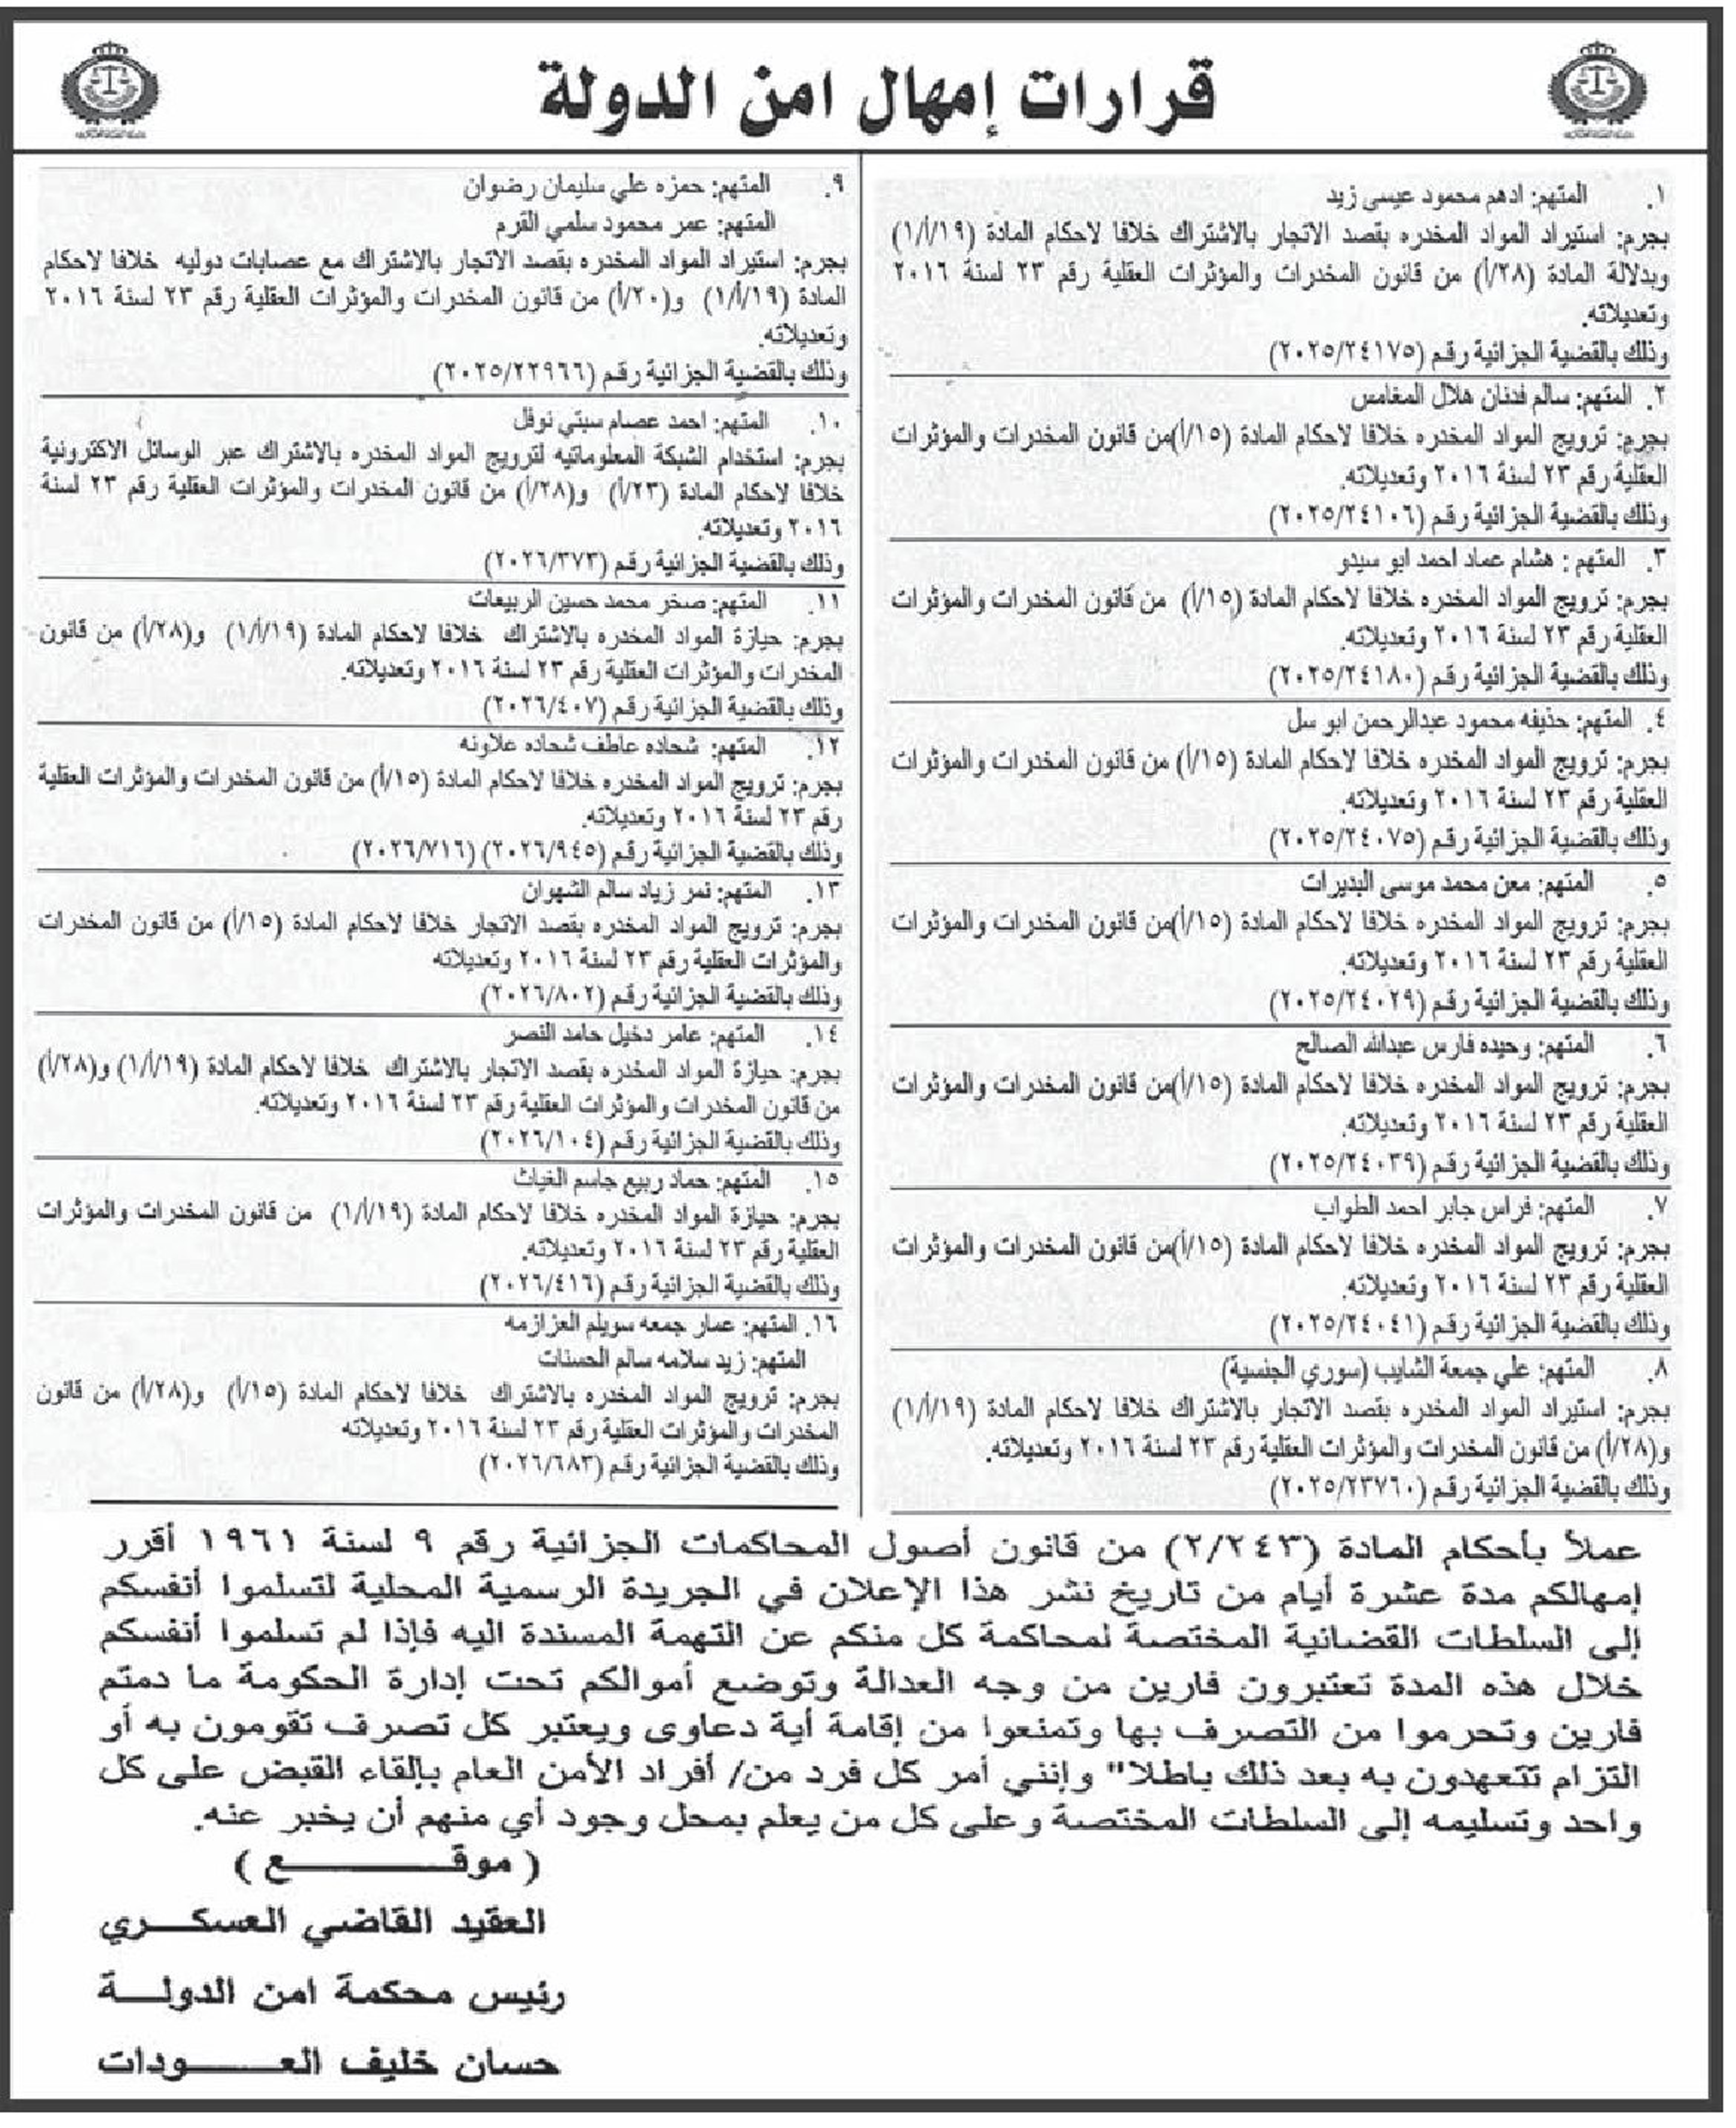 قرارات إمهال امن الدولة
١. المتهم: ادهم محمود عيسى زيد
بجرم: استيراد المواد المخدره بقصد الاتجار بالاشتراك خلافا لاحكام المادة (١/أ/١٩)
وبدلالة المادة (٢٨/أ) من قانون المخدرات والمؤثرات العقلية رقم ٢٣ لسنة ٢٠١٦
وتعديلاته.
وذلك بالقضية الجزائية رقم (٢٠٢٥/٢٤١٧٥)
٢. المتهم: سالم فدنان هلال المغامس
بجرم: ترويج المواد المخدره خلافا لاحكام المادة (١٥/أ)من قانون المخدرات والمؤثرات
العقلية رقم ٢٣ لسنة ٢٠١٦ وتعديلاته.
وذلك بالقضية الجزائية رقم (٢٠٢٥/٢٤١٠٦)
٣. المتهم : هشام عماد احمد ابو سيدو
بجرم: ترويج المواد المخدره خلافا لاحكام المادة (١٥/أ) من قانون المخدرات والمؤثرات
العقلية رقم ٢٣ لسنة ٢٠١٦ وتعديلاته.
وذلك بالقضية الجزائية رقم (٢٠٢٥/٢٤١٨٠)
٤. المتهم: حذيفه محمود عبدالرحمن ابو سل
بجرم: ترويج المواد المخدره خلافا لاحكام المادة (١٥/أ) من قانون المخدرات والمؤثرات
العقلية رقم ٢٣ لسنة ٢٠١٦ وتعديلاته.
وذلك بالقضية الجزائية رقم (٢٠٢٥/٢٤٠٧٥)
٥. المتهم: معن محمد موسى البديرات
بجرم: ترويج المواد المخدره خلافا لاحكام المادة (١٥/أ)من قانون المخدرات والمؤثرات
العقلية رقم ٢٣ لسنة ٢٠١٦ وتعديلاته.
وذلك بالقضية الجزائية رقم (٢٠٢٥/٢٤٠٢٩)
٦. المتهم: وحيده فارس عبدالله الصالح
بجرم: ترويج المواد المخدره خلافا لاحكام المادة (١٥/أ)من قانون المخدرات والمؤثرات
العقلية رقم ٢٣ لسنة ٢٠١٦ وتعديلاته.
وذلك بالقضية الجزائية رقم (٢٠٢٥/٢٤٠٣٩)
٧. المتهم: فراس جابر احمد الطواب
بجرم: ترويج المواد المخدره خلافا لاحكام المادة (١٥/أ)من قانون المخدرات والمؤثرات
العقلية رقم ٢٣ لسنة ٢٠١٦ وتعديلاته.
وذلك بالقضية الجزائية رقم (٢٠٢٥/٢٤٠٤١)
٨. المتهم: علي جمعة الشايب (سوري الجنسية)
بجرم: استيراد المواد المخدره بقصد الاتجار بالاشتراك خلافا لاحكام المادة (١/أ/١٩)
و(٢٨/أ) من قانون المخدرات والمؤثرات العقلية رقم ٢٣ لسنة ٢٠١٦ وتعديلاته.
وذلك بالقضية الجزائية رقم (٢٠٢٥/٢٣٧٦٠)
٩. المتهم: حمزه علي سليمان رضوان
المتهم: عمر محمود سلمي القرم
بجرم: استيراد المواد المخدره بقصد الاتجار بالاشتراك مع عصابات دوليه خلافا لاحكام
المادة (١/أ/١٩) و(٢٠/أ) من قانون المخدرات والمؤثرات العقلية رقم ٢٣ لسنة ٢٠١٦
وتعديلاته.
وذلك بالقضية الجزائية رقم (٢٠٢٥/٢٢٩٦٦)
١٠. المتهم: احمد عصام سبتي نوفل
بجرم: استخدام الشبكة المعلوماتيه لترويج المواد المخدره بالاشتراك عبر الوسائل الاكترونية
خلافا لاحكام المادة (٢٣/أ) و(٢٨/أ) من قانون المخدرات والمؤثرات العقلية رقم ٢٣ لسنة
٢٠١٦ وتعديلاته.
وذلك بالقضية الجزائية رقم (٢٠٢٦/٣٧٣)
١١. المتهم: صخر محمد حسين الربيعات
بجرم: حيازة المواد المخدره بالاشتراك خلافا لاحكام المادة (١/أ/١٩) و(٢٨/أ) من قانون
المخدرات والمؤثرات العقلية رقم ٢٣ لسنة ٢٠١٦ وتعديلاته.
وذلك بالقضية الجزائية رقم (٢٠٢٦/٤٠٧)
١٢. المتهم: شحاده عاطف شحاده علاونه
بجرم: ترويج المواد المخدره خلافا لاحكام المادة (١٥/أ) من قانون المخدرات والمؤثرات العقلية
رقم ٢٣ لسنة ٢٠١٦ وتعديلاته.
وذلك بالقضية الجزائية رقم (٢٠٢٦/٩٤٥) (٢٠٢٦/٧١٦)
١٣. المتهم: نمر زياد سالم الشهوان
بجرم: ترويج المواد المخدره بقصد الاتجار خلافا لاحكام المادة (١٥/أ) من قانون المخدرات
والمؤثرات العقلية رقم ٢٣ لسنة ٢٠١٦ وتعديلاته
وذلك بالقضية الجزائية رقم (٢٠٢٦/٨٠٢)
١٤. المتهم: عامر دخيل حامد النصر
بجرم: حيازة المواد المخدره بقصد الاتجار بالاشتراك خلافا لاحكام المادة (١/أ/١٩) و(٢٨/أ)
من قانون المخدرات والمؤثرات العقلية رقم ٢٣ لسنة ٢٠١٦ وتعديلاته.
وذلك بالقضية الجزائية رقم (٢٠٢٦/١٠٤)
١٥. المتهم: حماد ربيع جاسم الغياث
بجرم: حيازة المواد المخدره خلافا لاحكام المادة (١/أ/١٩) من قانون المخدرات والمؤثرات
العقلية رقم ٢٣ لسنة ٢٠١٦ وتعديلاته.
وذلك بالقضية الجزائية رقم (٢٠٢٦/٤١٦)
١٦. المتهم: عمار جمعه سويلم العزازمه
المتهم: زيد سلامه سالم الحسنات
بجرم: ترويج المواد المخدره بالاشتراك خلافا لاحكام المادة (١٥/أ) و(٢٨/أ) من قانون
المخدرات والمؤثرات العقلية رقم ٢٣ لسنة ٢٠١٦ وتعديلاته
وذلك بالقضية الجزائية رقم (٢٠٢٦/٦٨٣)
عملاً بأحكام المادة (٢/٢٤٣) من قانون أصول المحاكمات الجزائية رقم ٩ لسنة ١٩٦١ أقرر
إمهالكم مدة عشرة أيام من تاريخ نشر هذا الإعلان في الجريدة الرسمية المحلية لتسلموا أنفسكم
إلى السلطات القضائية المختصة لمحاكمة كل منكم عن التهمة المسندة اليه فإذا لم تسلموا أنفسكم
خلال هذه المدة تعتبرون فارين من وجه العدالة وتوضع أموالكم تحت إدارة الحكومة ما دمتم
فارين وتحرموا من التصرف بها وتمنعوا من إقامة أية دعاوى ويعتبر كل تصرف تقومون به أو
التزام تتعهدون به بعد ذلك باطلا" وإنني أمر كل فرد من/ أفراد الأمن العام بإلقاء القبض على كل
واحد وتسليمه إلى السلطات المختصة وعلى كل من يعلم بمحل وجود أي منهم أن يخبر عنه.
( موقـــــــــع )
العقيد القاضي العسكــــري
رئيس محكمة امن الدولـــة
حسان خليف العــــــودات